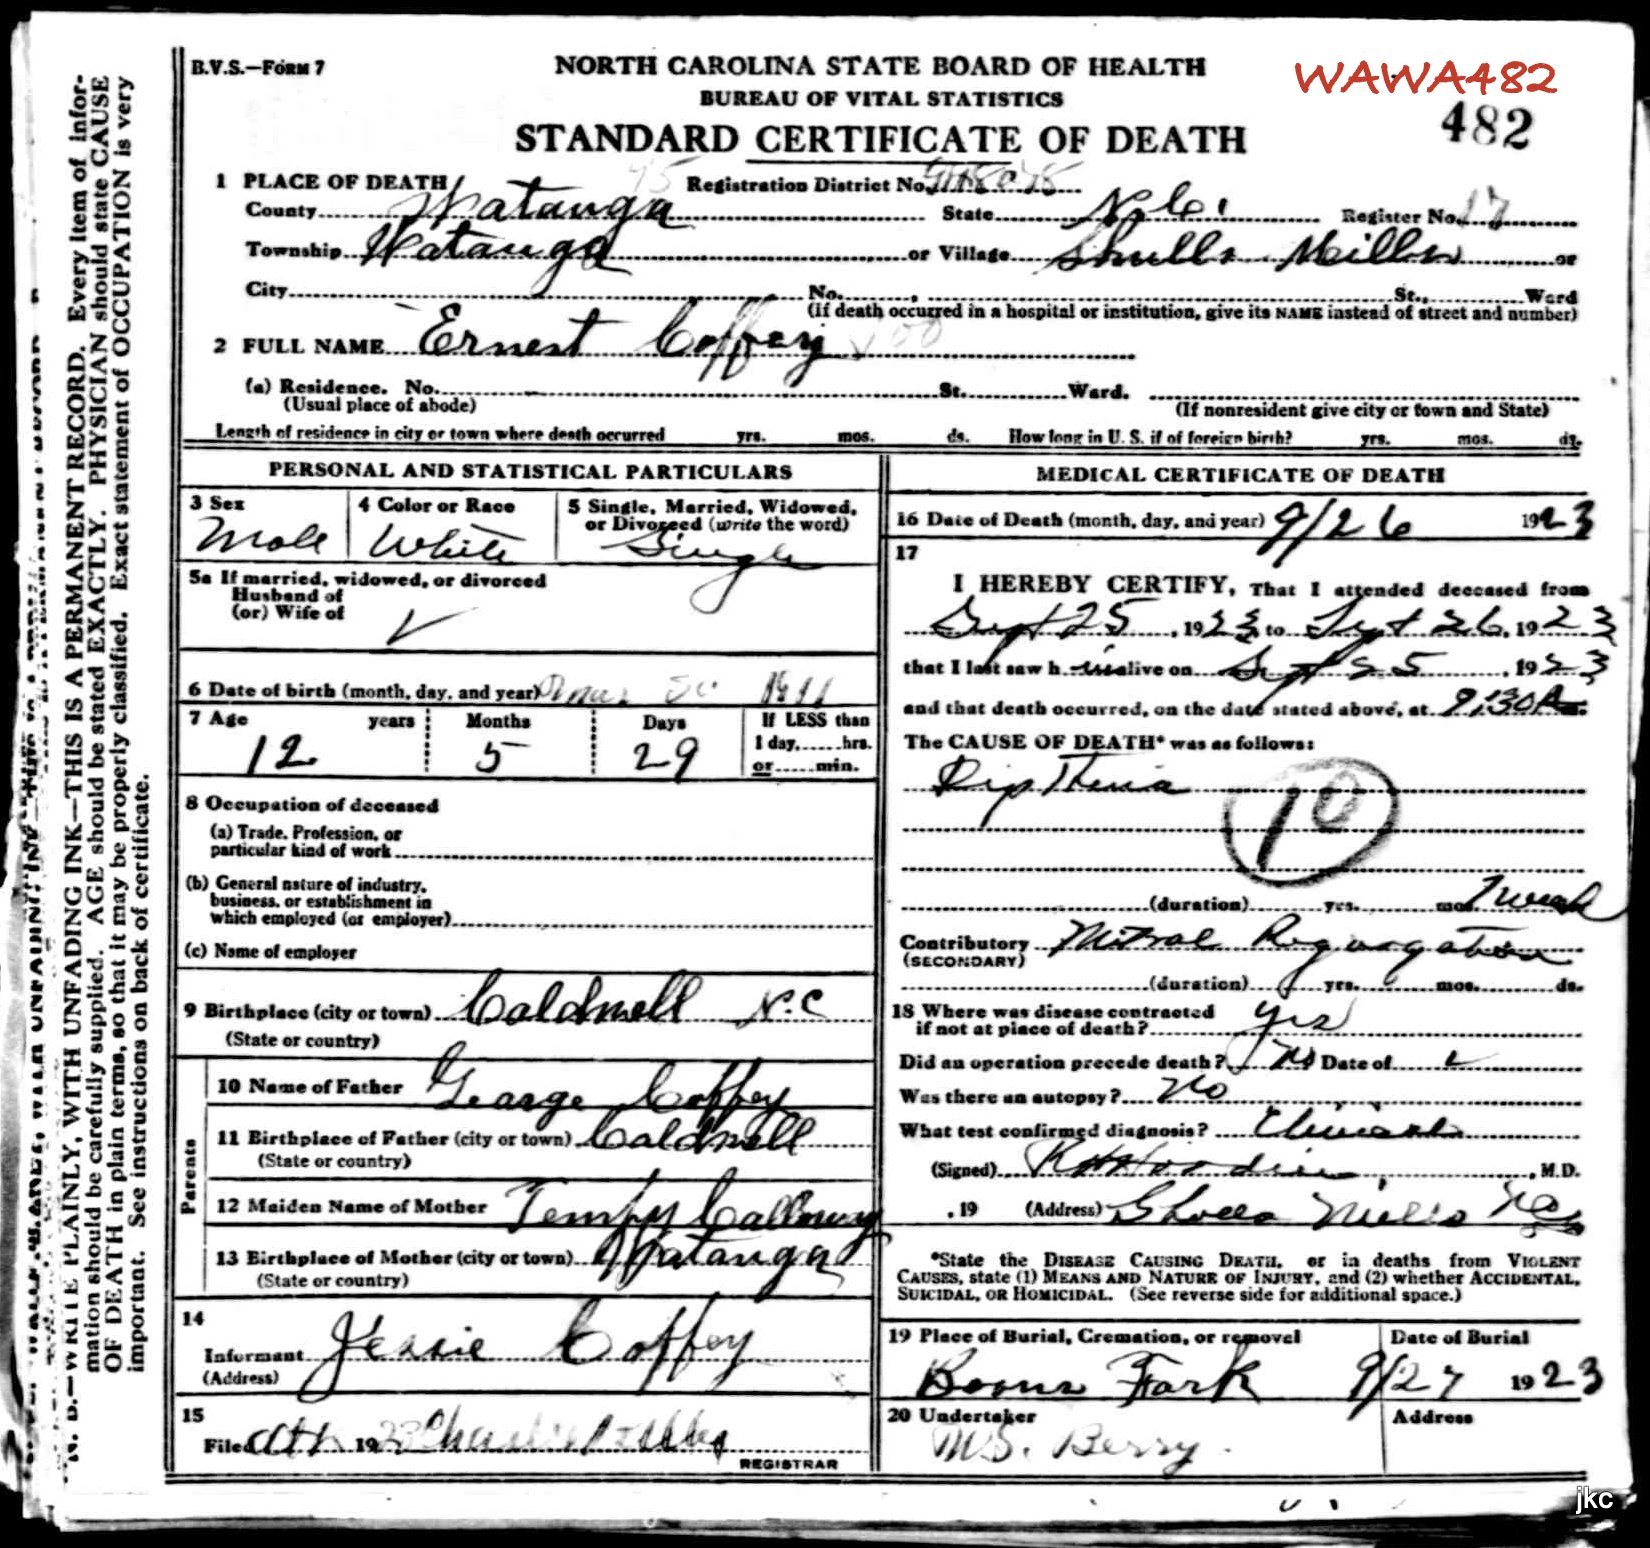 B.V.S.—FORM 7
NORTH CAROLINA STATE BOARD OF HEALTH
WAWA482
BUREAU OF VITAL STATISTICS
482
STANDARD CERTIFICATE OF DEATH
1 PLACE OF DEATH
Registration District No.
County Watauga State N.C. Register No. 17
Township Watauga or Village Shulls Mills or
City No. St., Ward
(If death occurred in a hospital or institution, give its NAME instead of street and number)
2 FULL NAME Ernest Coffey
(a) Residence. No. St. Ward.
(Usual place of abode) (If nonresident give city or town and State)
Length of residence in city or town where death occurred yrs. mos. ds. How long in U. S. if of foreign birth? yrs. mos. ds.
PERSONAL AND STATISTICAL PARTICULARS
3 Sex 4 Color or Race 5 Single, Married, Widowed,
or Divorced (write the word)
Male White Single
5a If married, widowed, or divorced
Husband of
(or) Wife of
6 Date of birth (month, day, and year) 1911
7 Age years Months Days If LESS than
1 day, hrs.
12 5 29 or min.
8 Occupation of deceased
(a) Trade, Profession, or
particular kind of work
(b) General nature of industry,
business, or establishment in
which employed (or employer)
(c) Name of employer
9 Birthplace (city or town) Caldwell N.C
(State or country)
Parents
10 Name of Father George Coffey
11 Birthplace of Father (city or town) Caldwell
(State or country)
12 Maiden Name of Mother Tempy Calloway
13 Birthplace of Mother (city or town) Watauga
(State or country)
14
Informant Jessie Coffey
(Address)
15
Filed 1923 Charlie
REGISTRAR
MEDICAL CERTIFICATE OF DEATH
16 Date of Death (month, day, and year) 9/26 1923
17
I HEREBY CERTIFY, That I attended deceased from
Sept 25, 1923 to Sept 26, 1923
that I last saw h im alive on Sept 25, 1923
and that death occurred, on the date stated above, at 9:30 A m.
The CAUSE OF DEATH* was as follows:
Diptheria
10
(duration) yrs. mos. 1 week
Contributory Mitral Regurgation
(SECONDARY)
(duration) yrs. mos. ds.
18 Where was disease contracted
if not at place of death? yes
Did an operation precede death? No Date of
Was there an autopsy? No
What test confirmed diagnosis? Clinical
(Signed) , M.D.
, 19 (Address) Shulls Mills NC
*State the DISEASE CAUSING DEATH, or in deaths from VIOLENT
CAUSES, state (1) MEANS AND NATURE OF INJURY, and (2) whether ACCIDENTAL,
SUICIDAL, OR HOMICIDAL. (See reverse side for additional space.)
19 Place of Burial, Cremation, or removal Date of Burial
Boons Fork 9/27 1923
20 Undertaker Address
M.S. Berry
N. B.—WRITE PLAINLY, WITH UNFADING INK—THIS IS A PERMANENT RECORD. Every item of infor-
mation should be carefully supplied. AGE should be stated EXACTLY. PHYSICIAN should state CAUSE
OF DEATH in plain terms, so that it may be properly classified. Exact statement of OCCUPATION is very
important. See instructions on back of certificate.
jkc